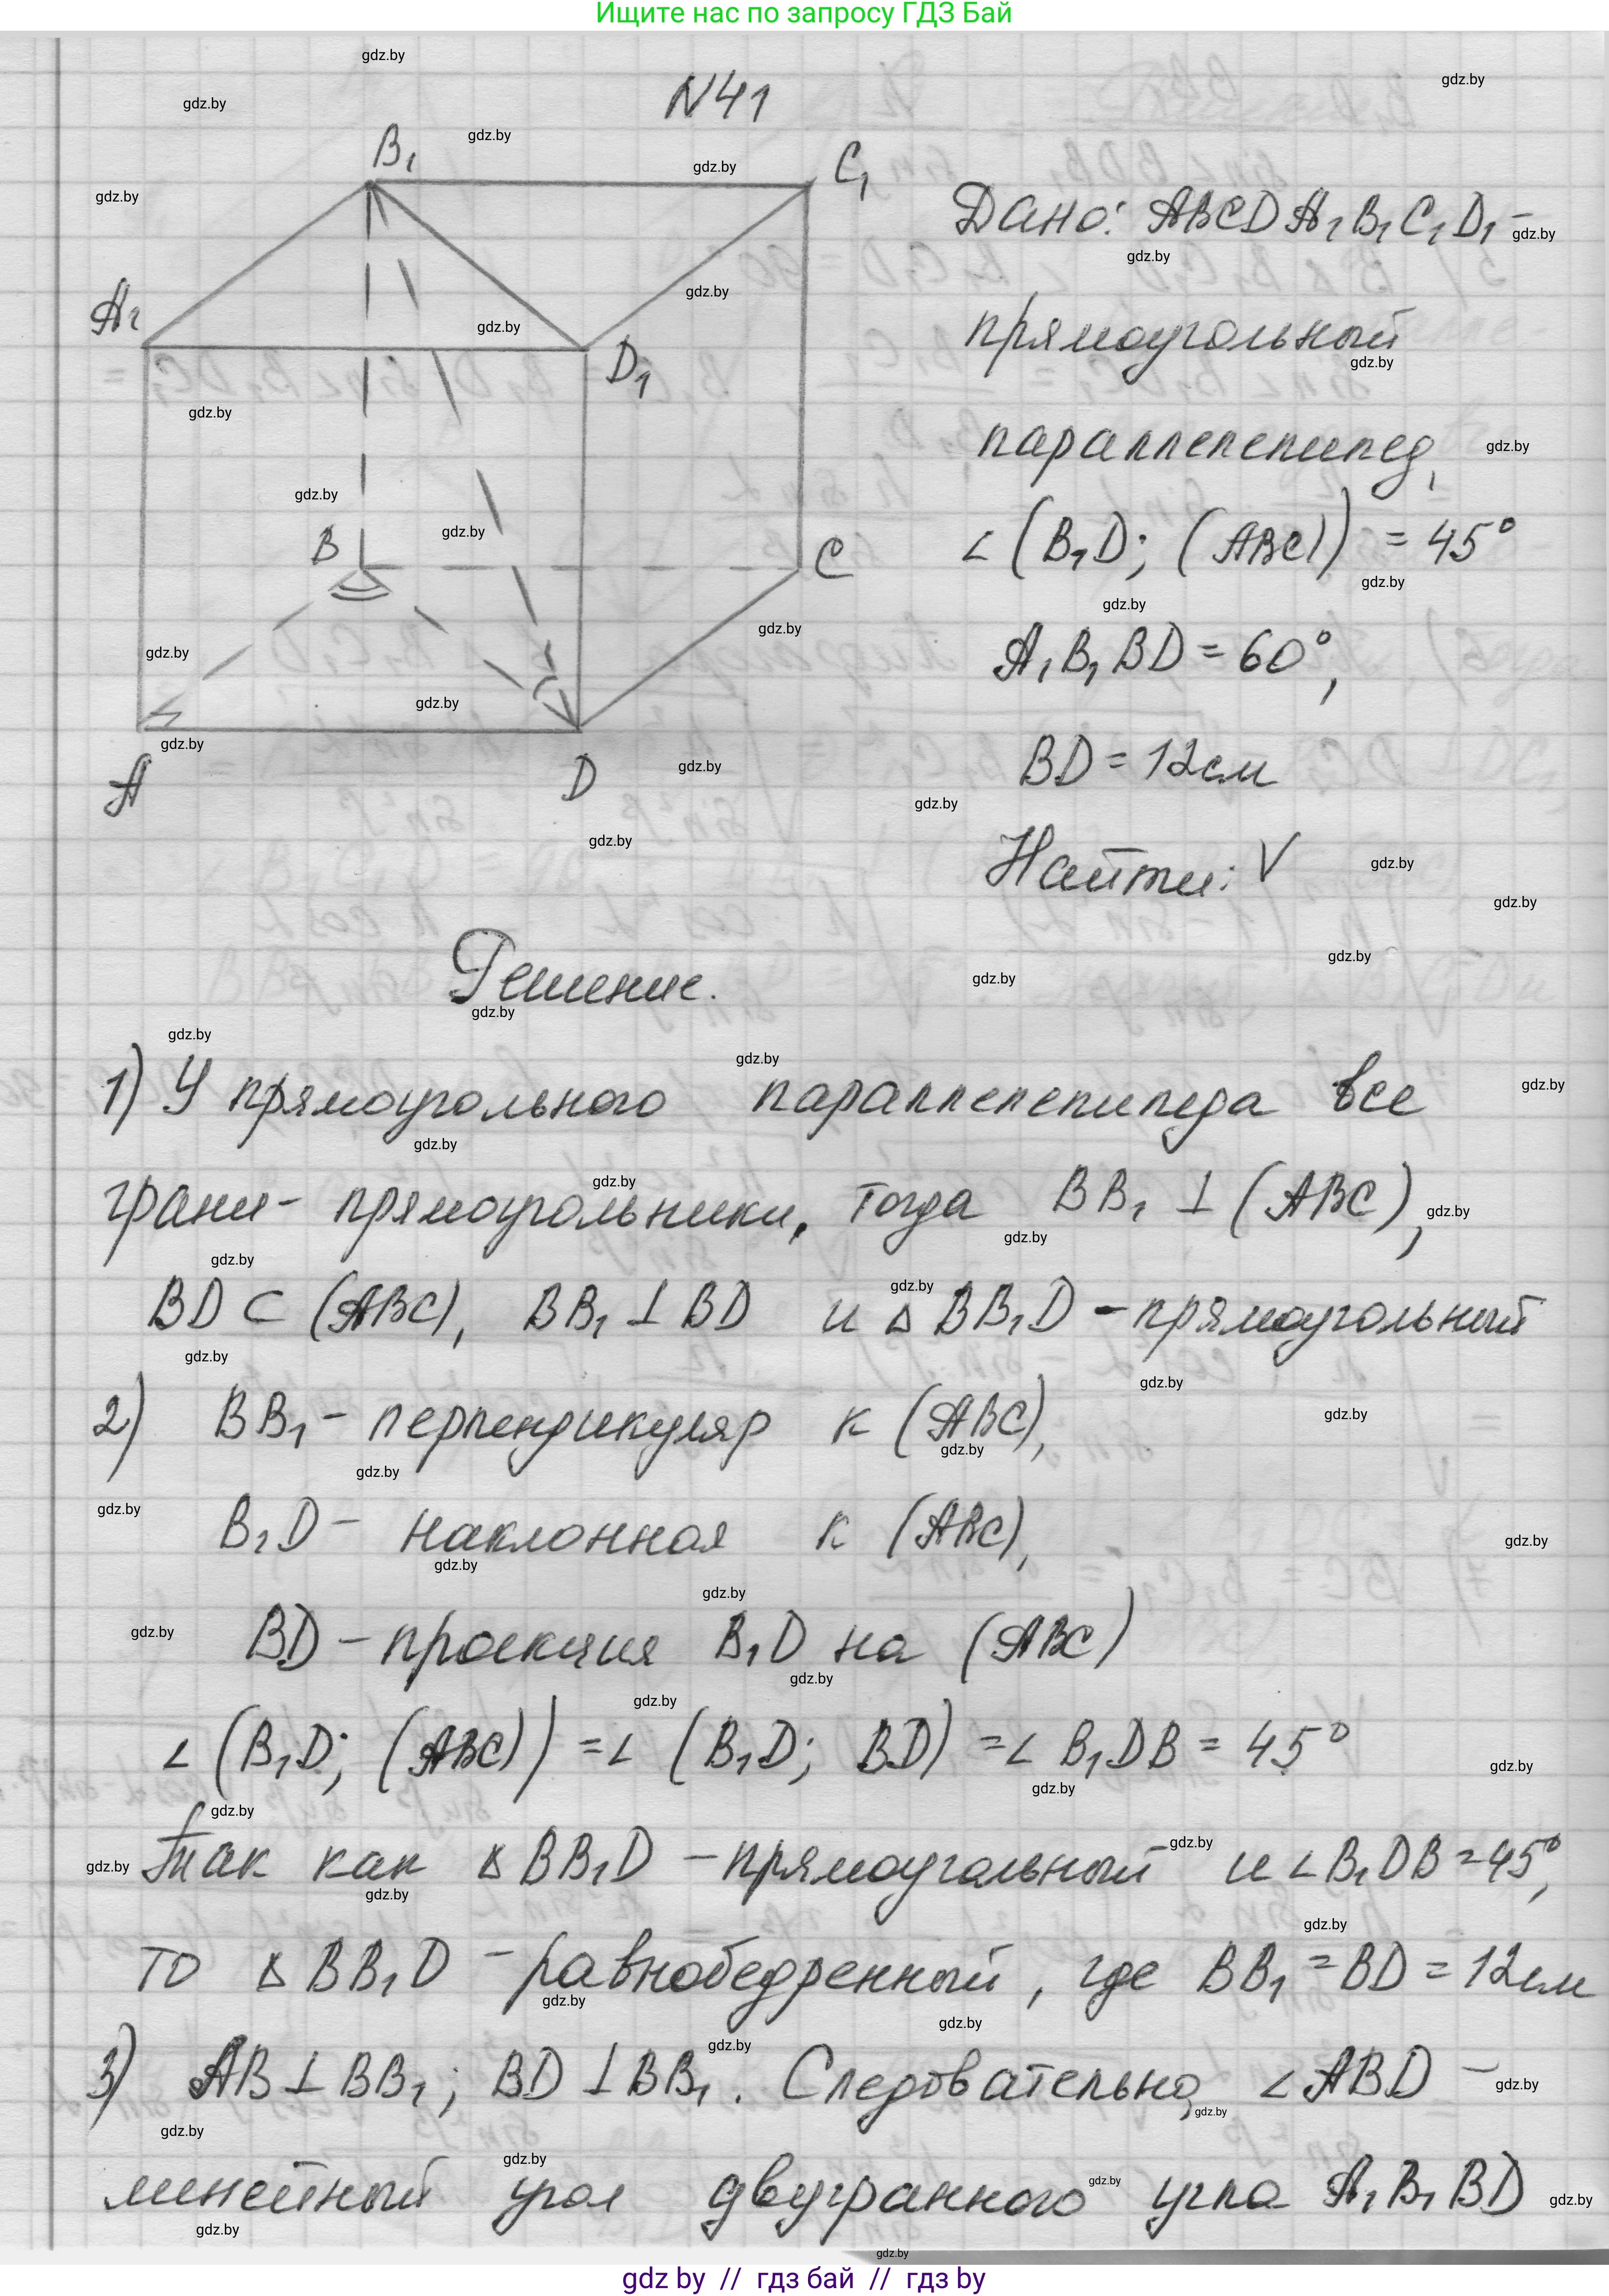 Ищите нас по запросу ГДЗ Бай
N41
B₁
C₁
A₁
D₁
B
C
A
D
Дано: ABCDA₁B₁C₁D₁ –
прямоугольный
параллелепипед,
∠(B₁D; (ABC)) = 45°
A₁B₁BD = 60°,
BD = 12см
Найти: V
Решение.
1) У прямоугольного параллелепипеда все
грани - прямоугольники, тогда BB₁ ⊥ (ABC),
BD ⊂ (ABC), BB₁ ⊥ BD и △BB₁D - прямоугольный
2) BB₁ - перпендикуляр к (ABC),
B₁D - наклонная к (ABC),
BD - проекция B₁D на (ABC)
∠(B₁D; (ABC)) = ∠(B₁D; BD) = ∠B₁DB = 45°
Так как △BB₁D - прямоугольный и ∠B₁DB = 45°,
то △BB₁D - равнобедренный, где BB₁ = BD = 12см
3) AB ⊥ BB₁; BD ⊥ BB₁. Следовательно, ∠ABD -
линейный угол двугранного угла A₁B₁BD
gdz.by
gdz by // гдз бай // гдз by